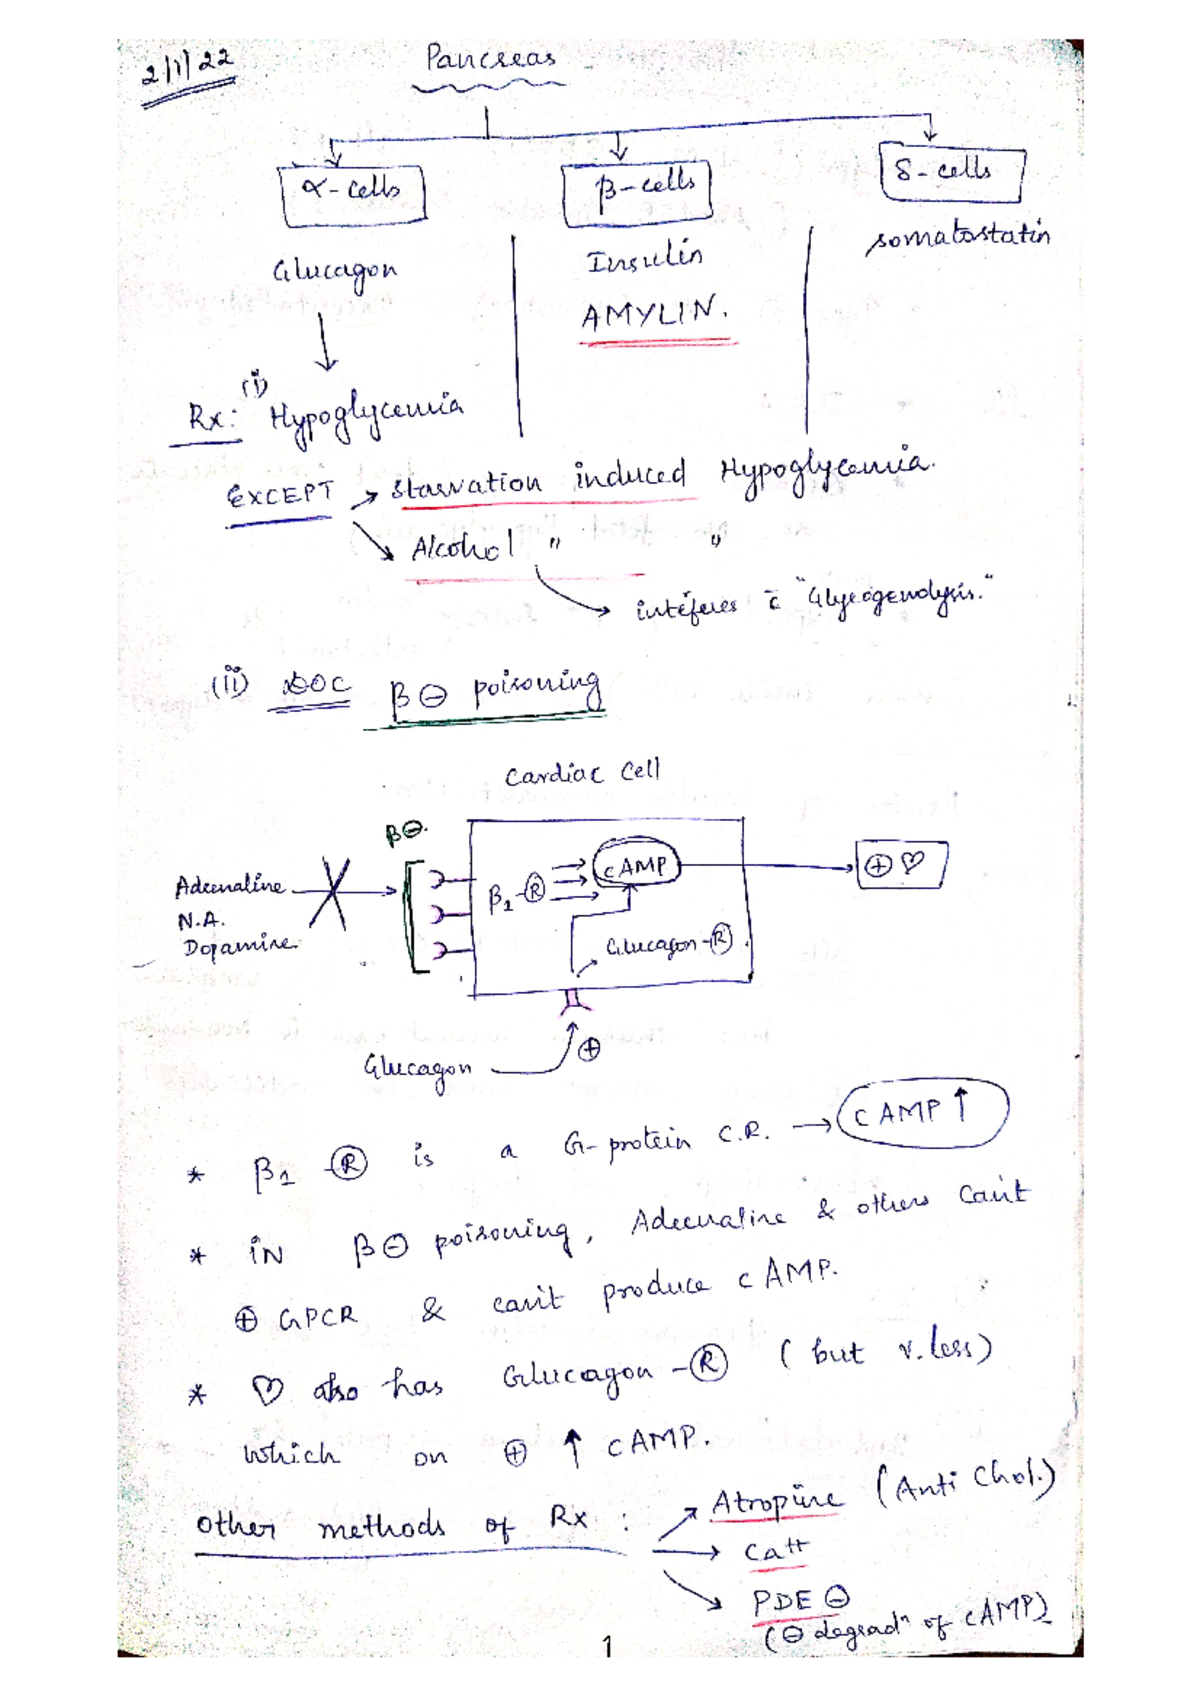 2/1/22
Pancreas
α-cells
β-cells
δ-cells
Glucagon
Insulin
AMYLIN.
somatostatin
Rx: (i) Hypoglycemia
EXCEPT → Starvation induced Hypoglycemia.
↘ Alcohol " "
→ inteferes c̄ "Glycogenolysis."
(ii) DOC β⊖ poisoning
Cardiac Cell
β⊖.
Adrenaline
N.A.
Dopamine
β1-Ⓡ
cAMP
⊕ ♡
Glucagon-Ⓡ
Glucagon
⊕
* β1 -Ⓡ is a G-protein C.R. → cAMP ↑
* iN β⊖ poisoning, Adrenaline & others Can't
⊕ GPCR & can't produce cAMP.
* ♡ also has Glucagon-Ⓡ (but v. less)
which on ⊕ ↑ cAMP.
other methods of Rx : ↗ Atropine (Anti Chol.)
→ Ca++
↘ PDE ⊖
(⊖ degradⁿ of cAMP)
1